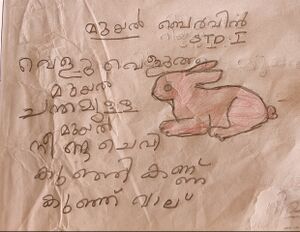 മുയൽ
STD I
വെളു വെളുത്ത
മുയൽ
ചന്തമുള്ള
മുയൽ
നീണ്ട ചെവി
കുഞ്ഞി കണ്ണ്
കുഞ്ഞ് വാല്